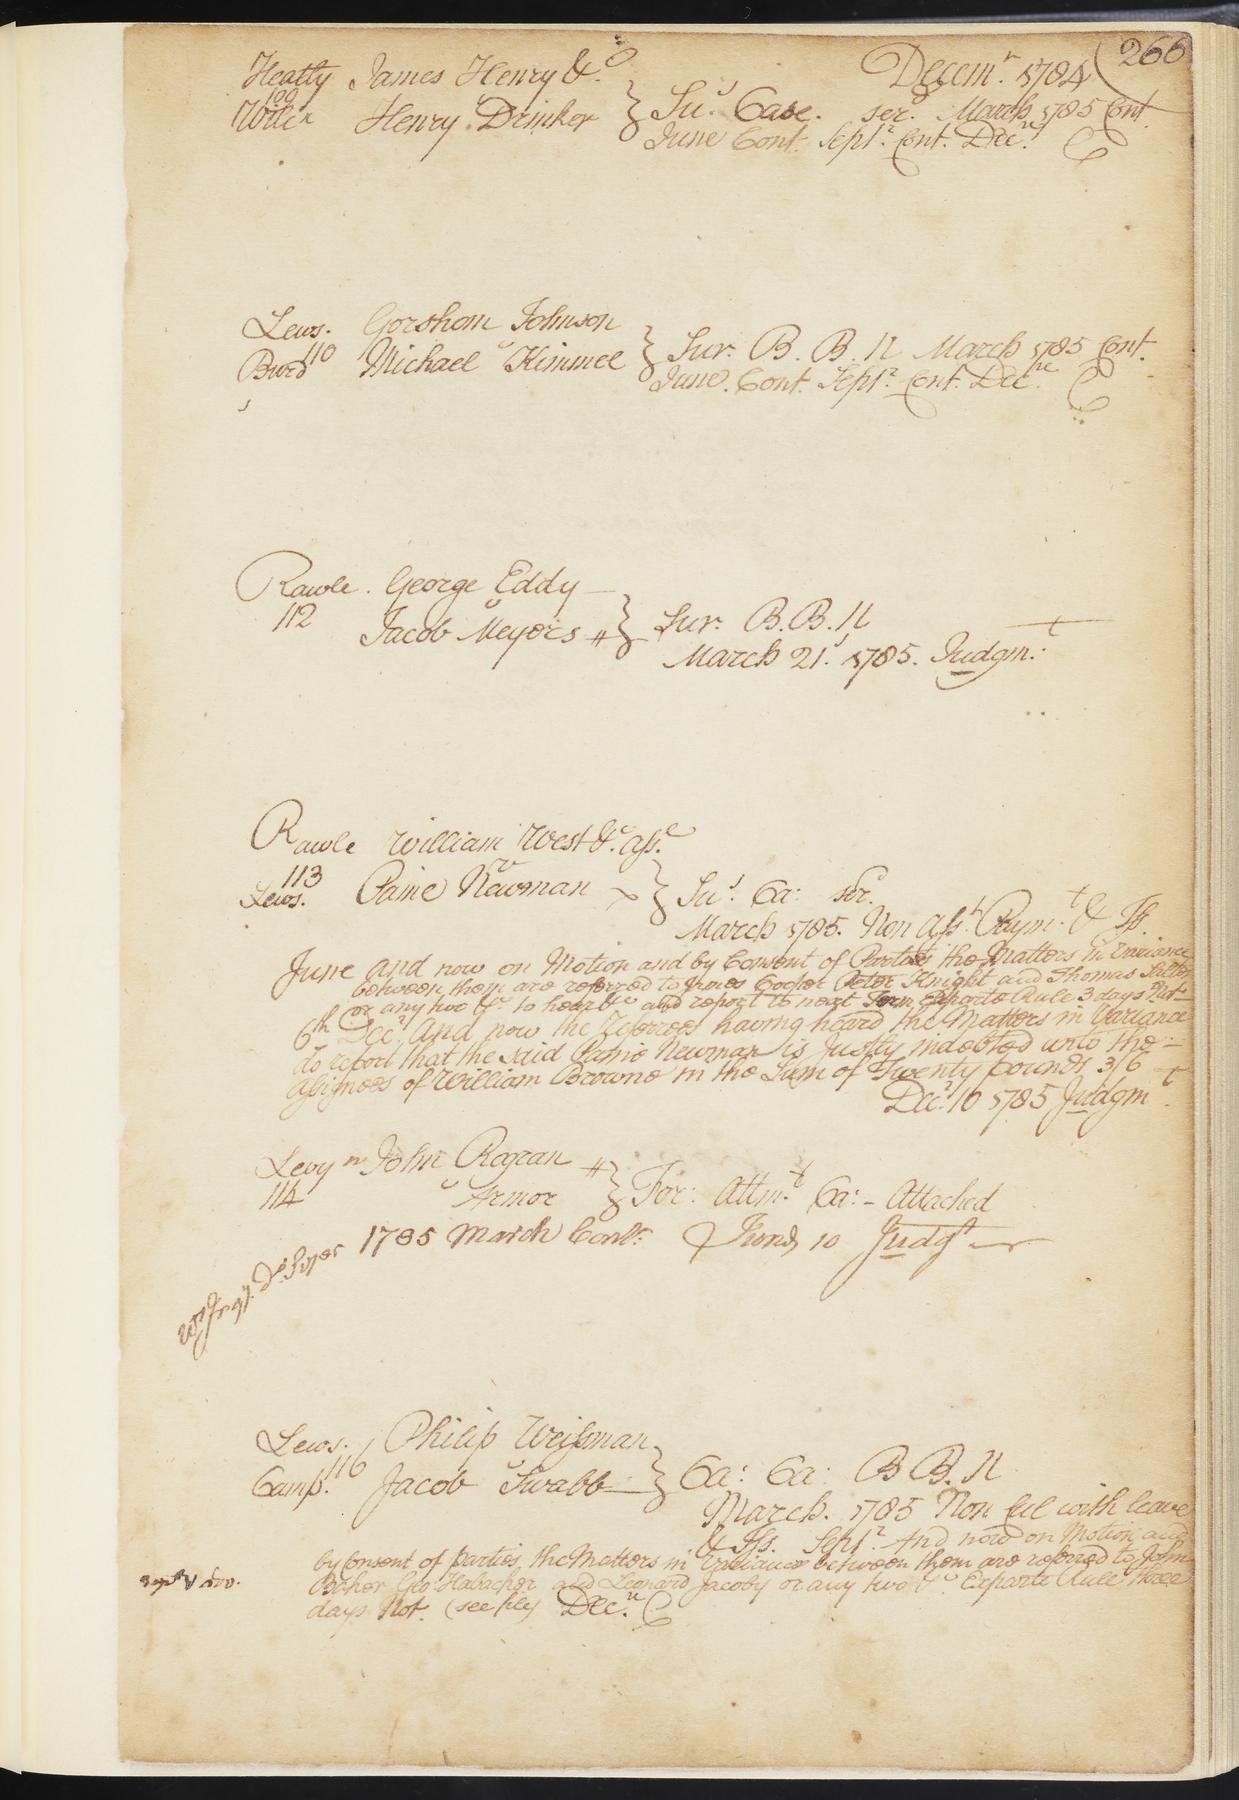 Decemr. 1784 (266
Heatly James Henry & Co
100
Henry Drinker } Sus. Case. ser. March 1785 Cont
June Cont. Septr. Cont. Decr.
Lews. Gorshom Johnson
110
Burd Michael Kimmel } Sur. B. B. N March 1785 Cont.
June. Cont. Septr. Cont. Decr.
Rawle. George Eddy
112 Jacob Meyers # } Sur. B. B. N
March 21. 1785. Judgmt.
Rawle William West &c. asse
113
Lews. Paine Newman } Sus. Ca: ser.
March 1785. Non asst. Paymt. & Iss.
June and now on Motion and by Consent of Parties the Matters in Variance
between them are referred to James Cooper Peter Knight and Thomas
or any two &c. to hear &c and report to next Term Exparte Rule 3 days Not
6th Decr. And now the Referrees having heard the Matters in Variance
do report that the said Paine Newman is Justly indebted unto the
assignees of William Browne in the Sum of Twenty pounds 3/6
Decr. 10 1785 Judgmt.
Levy n John Ragan #
114 Armor } For: Attmt. Ca: - Attached
1785 March Cont. June 10 Judgt
Lews. Philip Weissman
116
Camp. Jacob Swabb } Ca: Ca: B B. N
March. 1785 Non cul with leave
& Iss. Septr. And now on Motion and
by Consent of parties the Matters in Variance between them are referred to John
Geo. Habacker and Leonard Jacoby or any two &c Exparte Rule three
days Not. (see Decr.